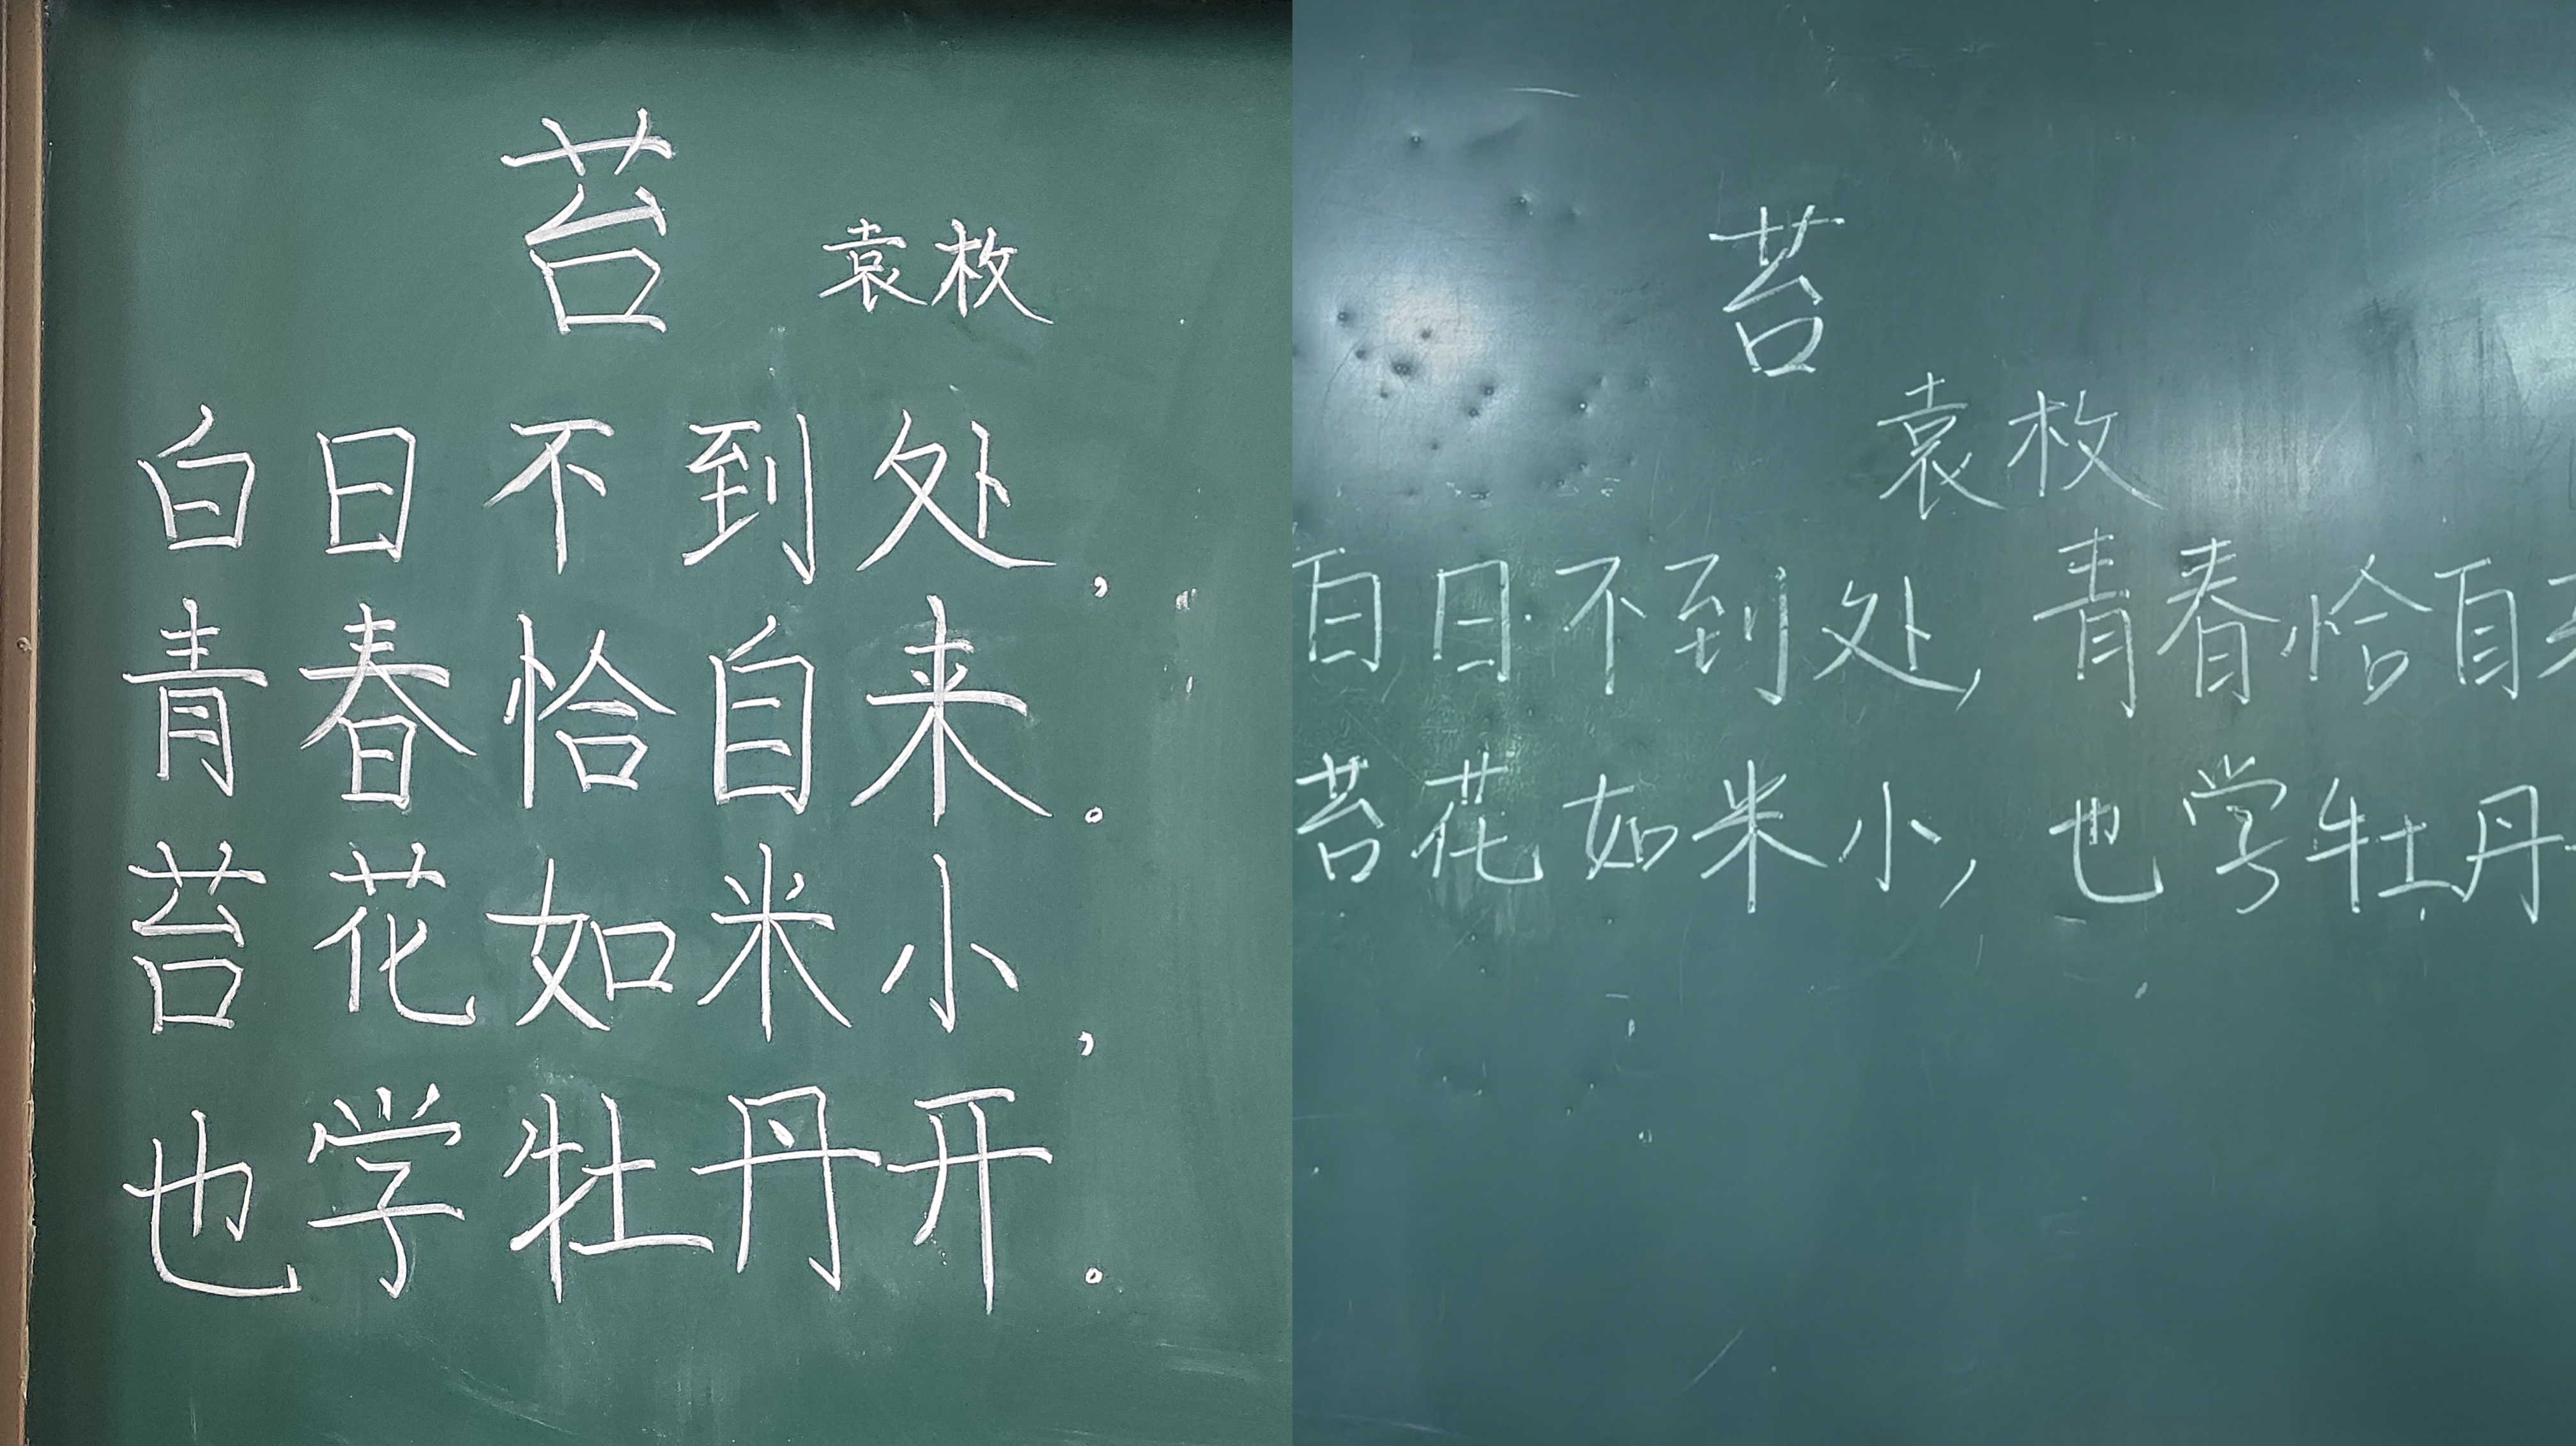 苔
袁枚
白日不到处，
青春恰自来。
苔花如米小，
也学牡丹开。
苔
袁枚
日不到处，青春恰自
苔花如米小，也学牡丹